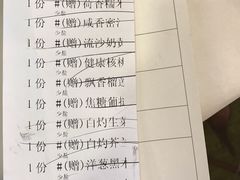 1份 #(赠)荷香糯
少盐
1份 #(赠)咸香密
少盐
1份 #(赠)流沙奶
少盐
1份 #(赠)健康核桃
少盐
1份 #(赠)飘香榴
少盐
1份 #(赠)焦糖葡
少盐
1份 #(赠)白灼生
少盐
1份 #(赠)白灼芥
少盐
1份 #(赠)洋葱黑木
少盐